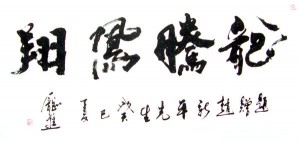 龍騰鳳翔
題贈趙新平先生癸巳夏